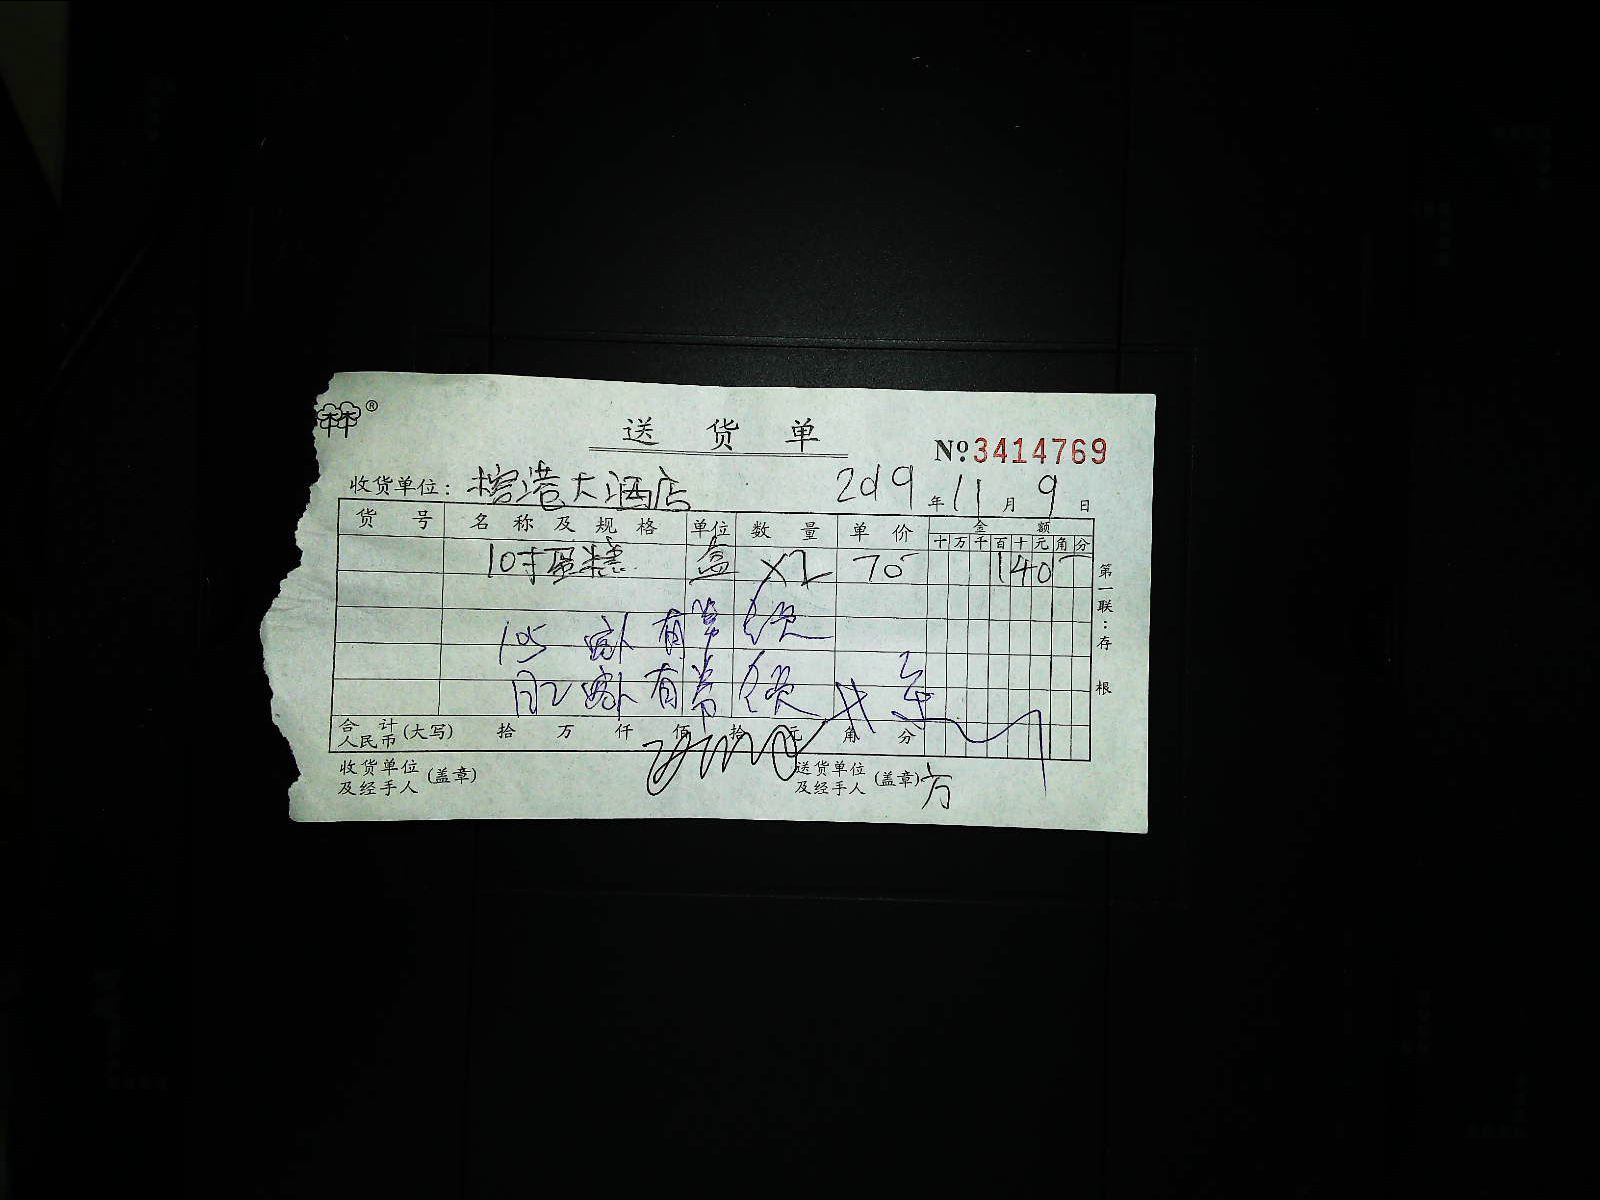 林®
送货单
№3414769
收货单位：榕港大酒店 2019年11月9日
货号 名称及规格 单位 数量 单价 金额
十万千百十元角分
10寸蛋糕 盒 x2 70 140
105 有常
有常
合计人民币(大写) 拾 万 仟 佰 拾 元 角 分
收货单位及经手人(盖章) 送货单位及经手人(盖章) 方
第一联：存根